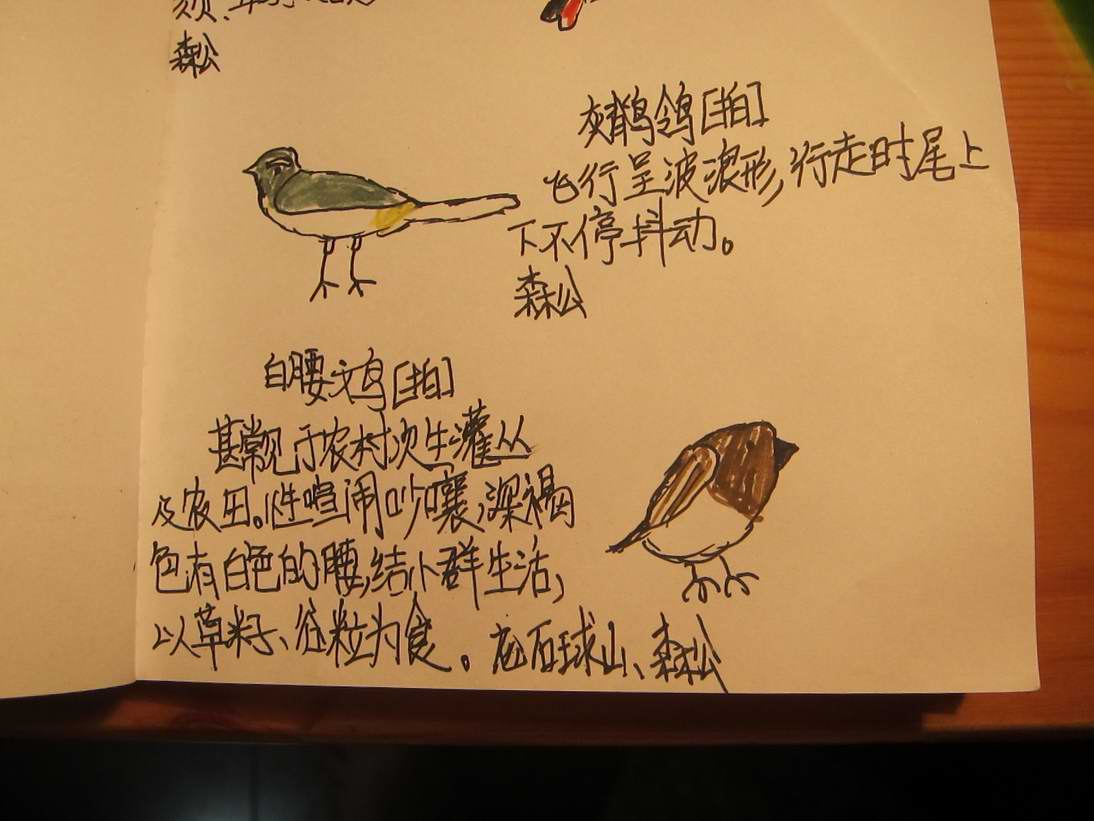 森公
灰鹡鸰[拍]
飞行呈波浪形,行走时尾上
下不停抖动。
森公
白腰文鸟[拍]
甚常见于农村次生灌丛
及农田。性喧闹吵嚷,深褐
色有白色的腰,结小群生活,
以草籽、谷粒为食。石球山、森公